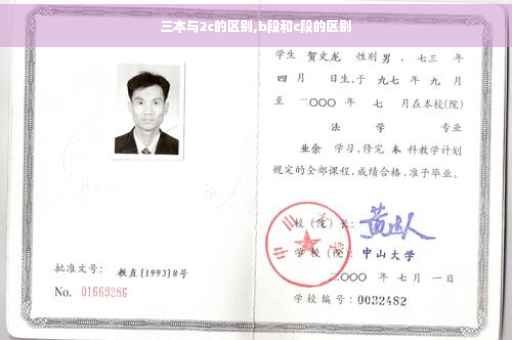 三本与2c的区别,b段和c段的区别
学生 贺文龙 性别 男 、七三 年
四 月 日生,于 九七 年 九 月
至 二〇〇〇 年 七 月在本校(院)
法 学 专业
业余 学习,修完 本 科教学计划
规定的全部课程,成绩合格,准予毕业。
校(院)长:
学校(院): 中山大学
二〇〇〇 年 七 月 一 日
学校编号:0032482
批准文号: 教直[1993]8号
No. 01669286